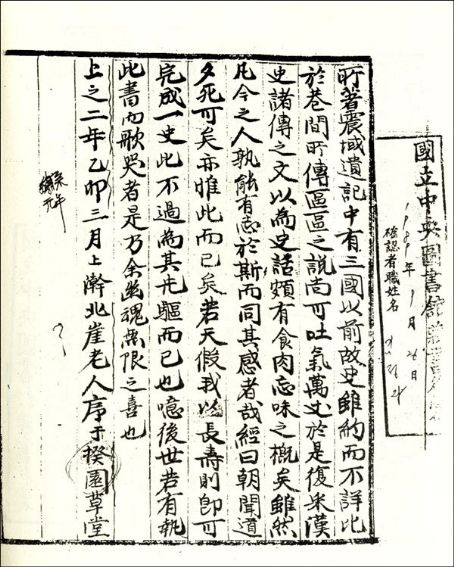 國立中央圖書館
1989年1月26日
確認者職姓名
所著震域遺記中有三國以前故史雖約而不詳比
於巷間所傳區區之說尚可吐氣萬丈於是復采漢
史諸傳之文以為史話頗有食肉忘味之概矣雖然
凡今之人孰能有志於斯而同其感者哉經曰朝聞道
夕死可矣亦惟此而已矣若天假我以長壽則即可
完成一史此不過為其先驅而已也噫後世若有執
此書而歌哭者是乃余幽魂無限之喜也
上之二年乙卯三月上澣北崖老人序于揆園草堂
肅宗元年